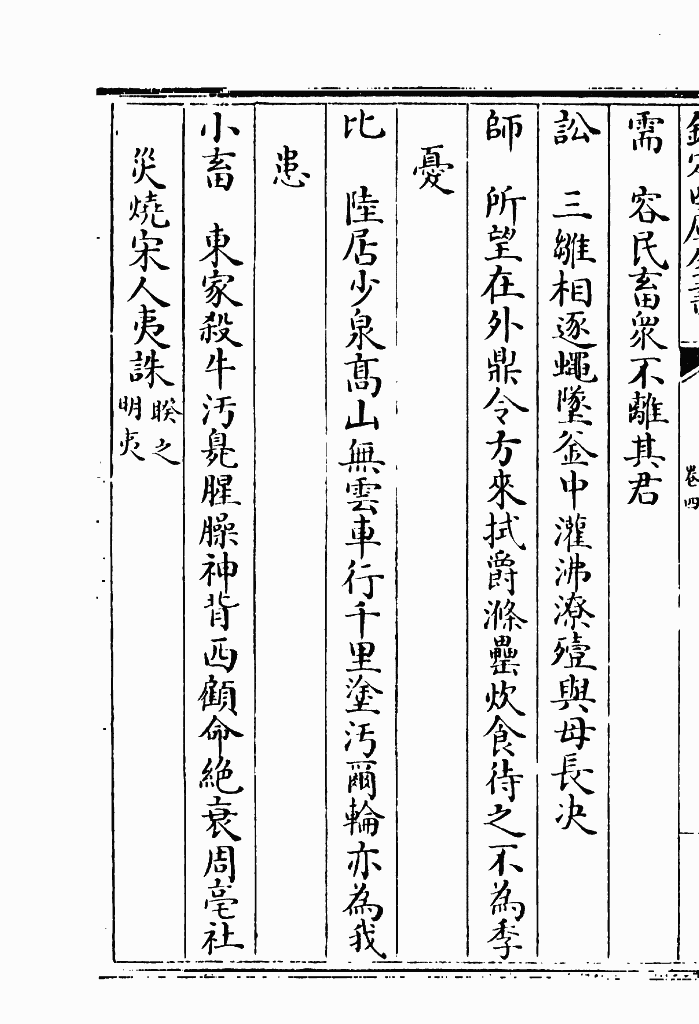 欽定四庫全書
卷四
需　容民畜衆不離其君
訟　三雛相逐蠅墜釜中灌沸潦殪與母長决
師　所望在外鼎令方來拭爵滌罍炊食待之不為季
憂
比　陸居少泉髙山無雲車行千里塗汚爾輪亦為我
患
小畜　東家殺牛汚臭腥臊神背西顧命絶衰周亳社
災燒宋人夷誅睽之
明夷